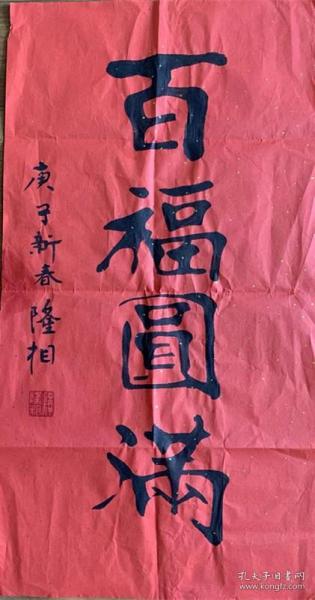 百福圓滿
庚子新春 隆相
孔夫子旧书网
www.kongfz.com